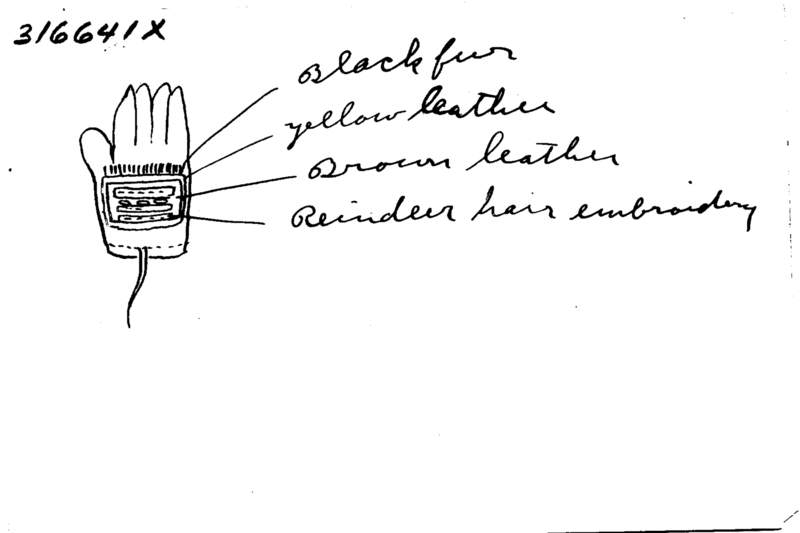 316641X
Black fur
yellow leather
Brown leather
Reindeer hair embroidery